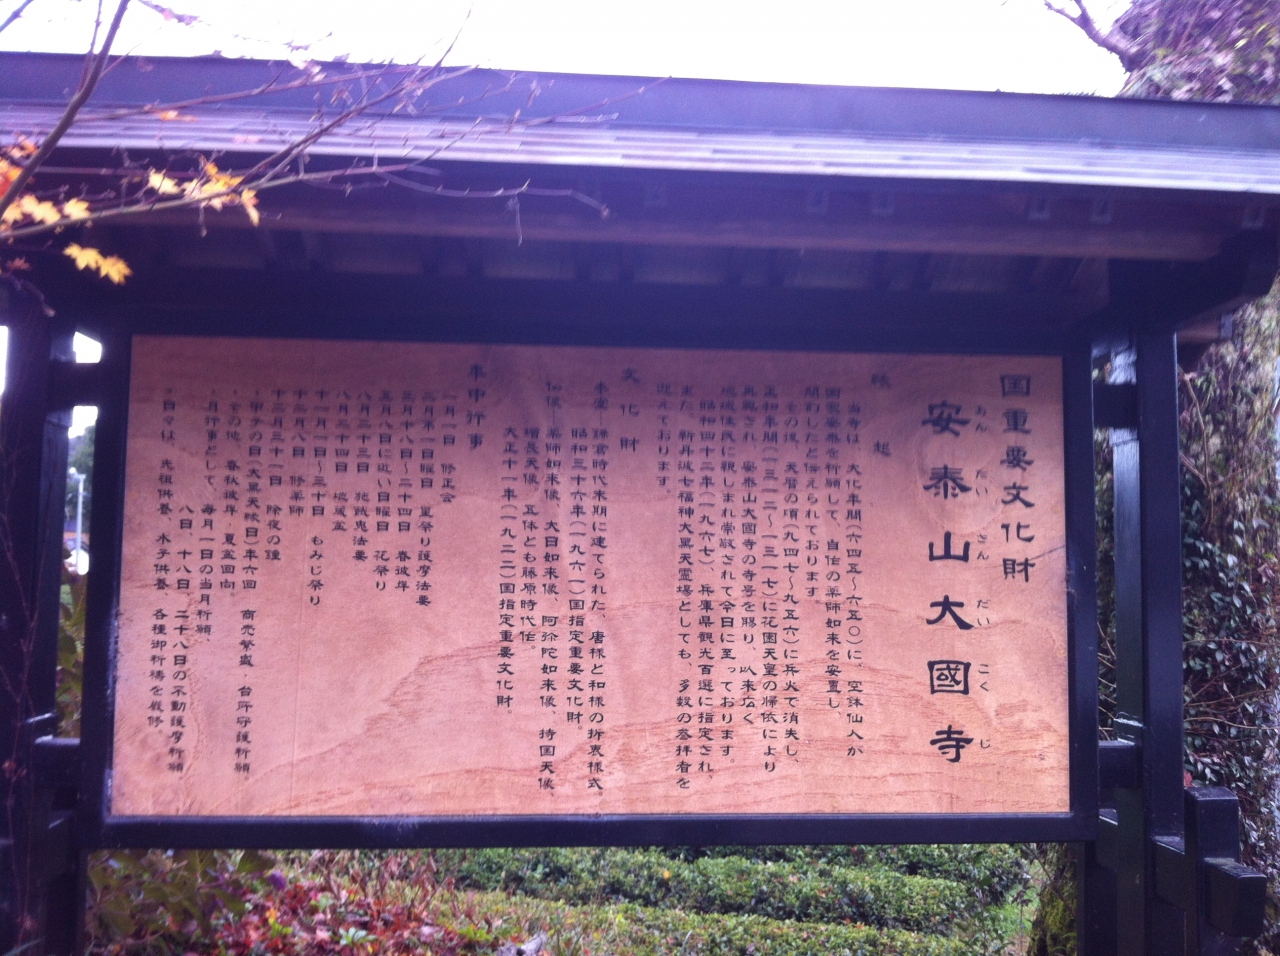 国重要文化財
安泰山大國寺
あんたいさんだいこくじ
縁起
当寺は、大化年間(六四五~六五〇)に、空鉢仙人が
国家安泰を祈願して、自作の薬師如来を安置し、
開創したと伝えられております。
その後、天暦の頃(九四七~九五六)に兵火で消失し、
正和年間(一三一二~一三一七)に花園天皇の帰依により
再興され、安泰山大國寺の寺号を賜り、以来広く
地域住民に親しまれ崇敬されて今日に至っております。
昭和四十二年(一九六七)、兵庫県観光百選に指定され、
また、新丹波七福神大黒天霊場としても、多数の参拝者を
迎えております。
文化財
本堂 鎌倉時代末期に建てられた、唐様と和様の折衷様式。
昭和三十六年(一九六一)国指定重要文化財。
仏像 薬師如来像、大日如来像、阿弥陀如来像、持国天像、
増長天像、五体とも藤原時代作。
大正十一年(一九二二)国指定重要文化財。
年中行事
一月一日 修正会
二月第一日曜日 星祭り護摩法要
三月十八日~二十四日 春彼岸
五月八日に近い日曜日 花祭り
八月二十三日 施餓鬼法要
八月二十四日 地蔵盆
十一月一日~三十日 もみじ祭り
十二月八日 修薬師
十二月三十一日 除夜の鐘
・甲子の日(大黒天縁日)年六回 商売繁盛、台所守護祈願。
・その他、春秋彼岸、夏盆回向。
・月行事として、毎月一日の当月祈願、
八日、十八日、二十八日の不動護摩祈願
・日々は、先祖供養、水子供養、各種御祈祷を厳修。